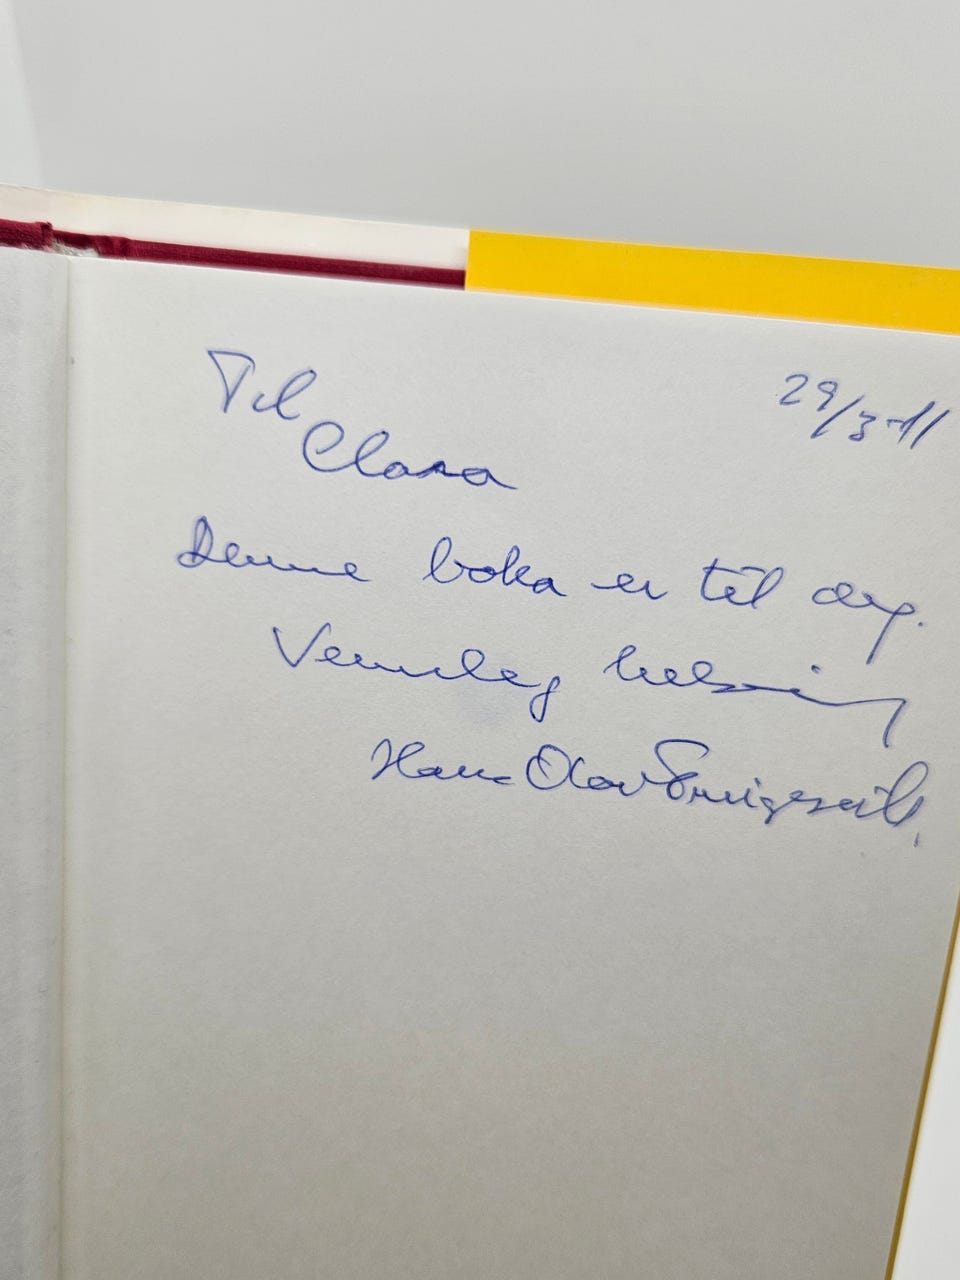 Til
29/3-11
Clara
Denne boka er til deg.
Vennleg helsing
Hans Olav